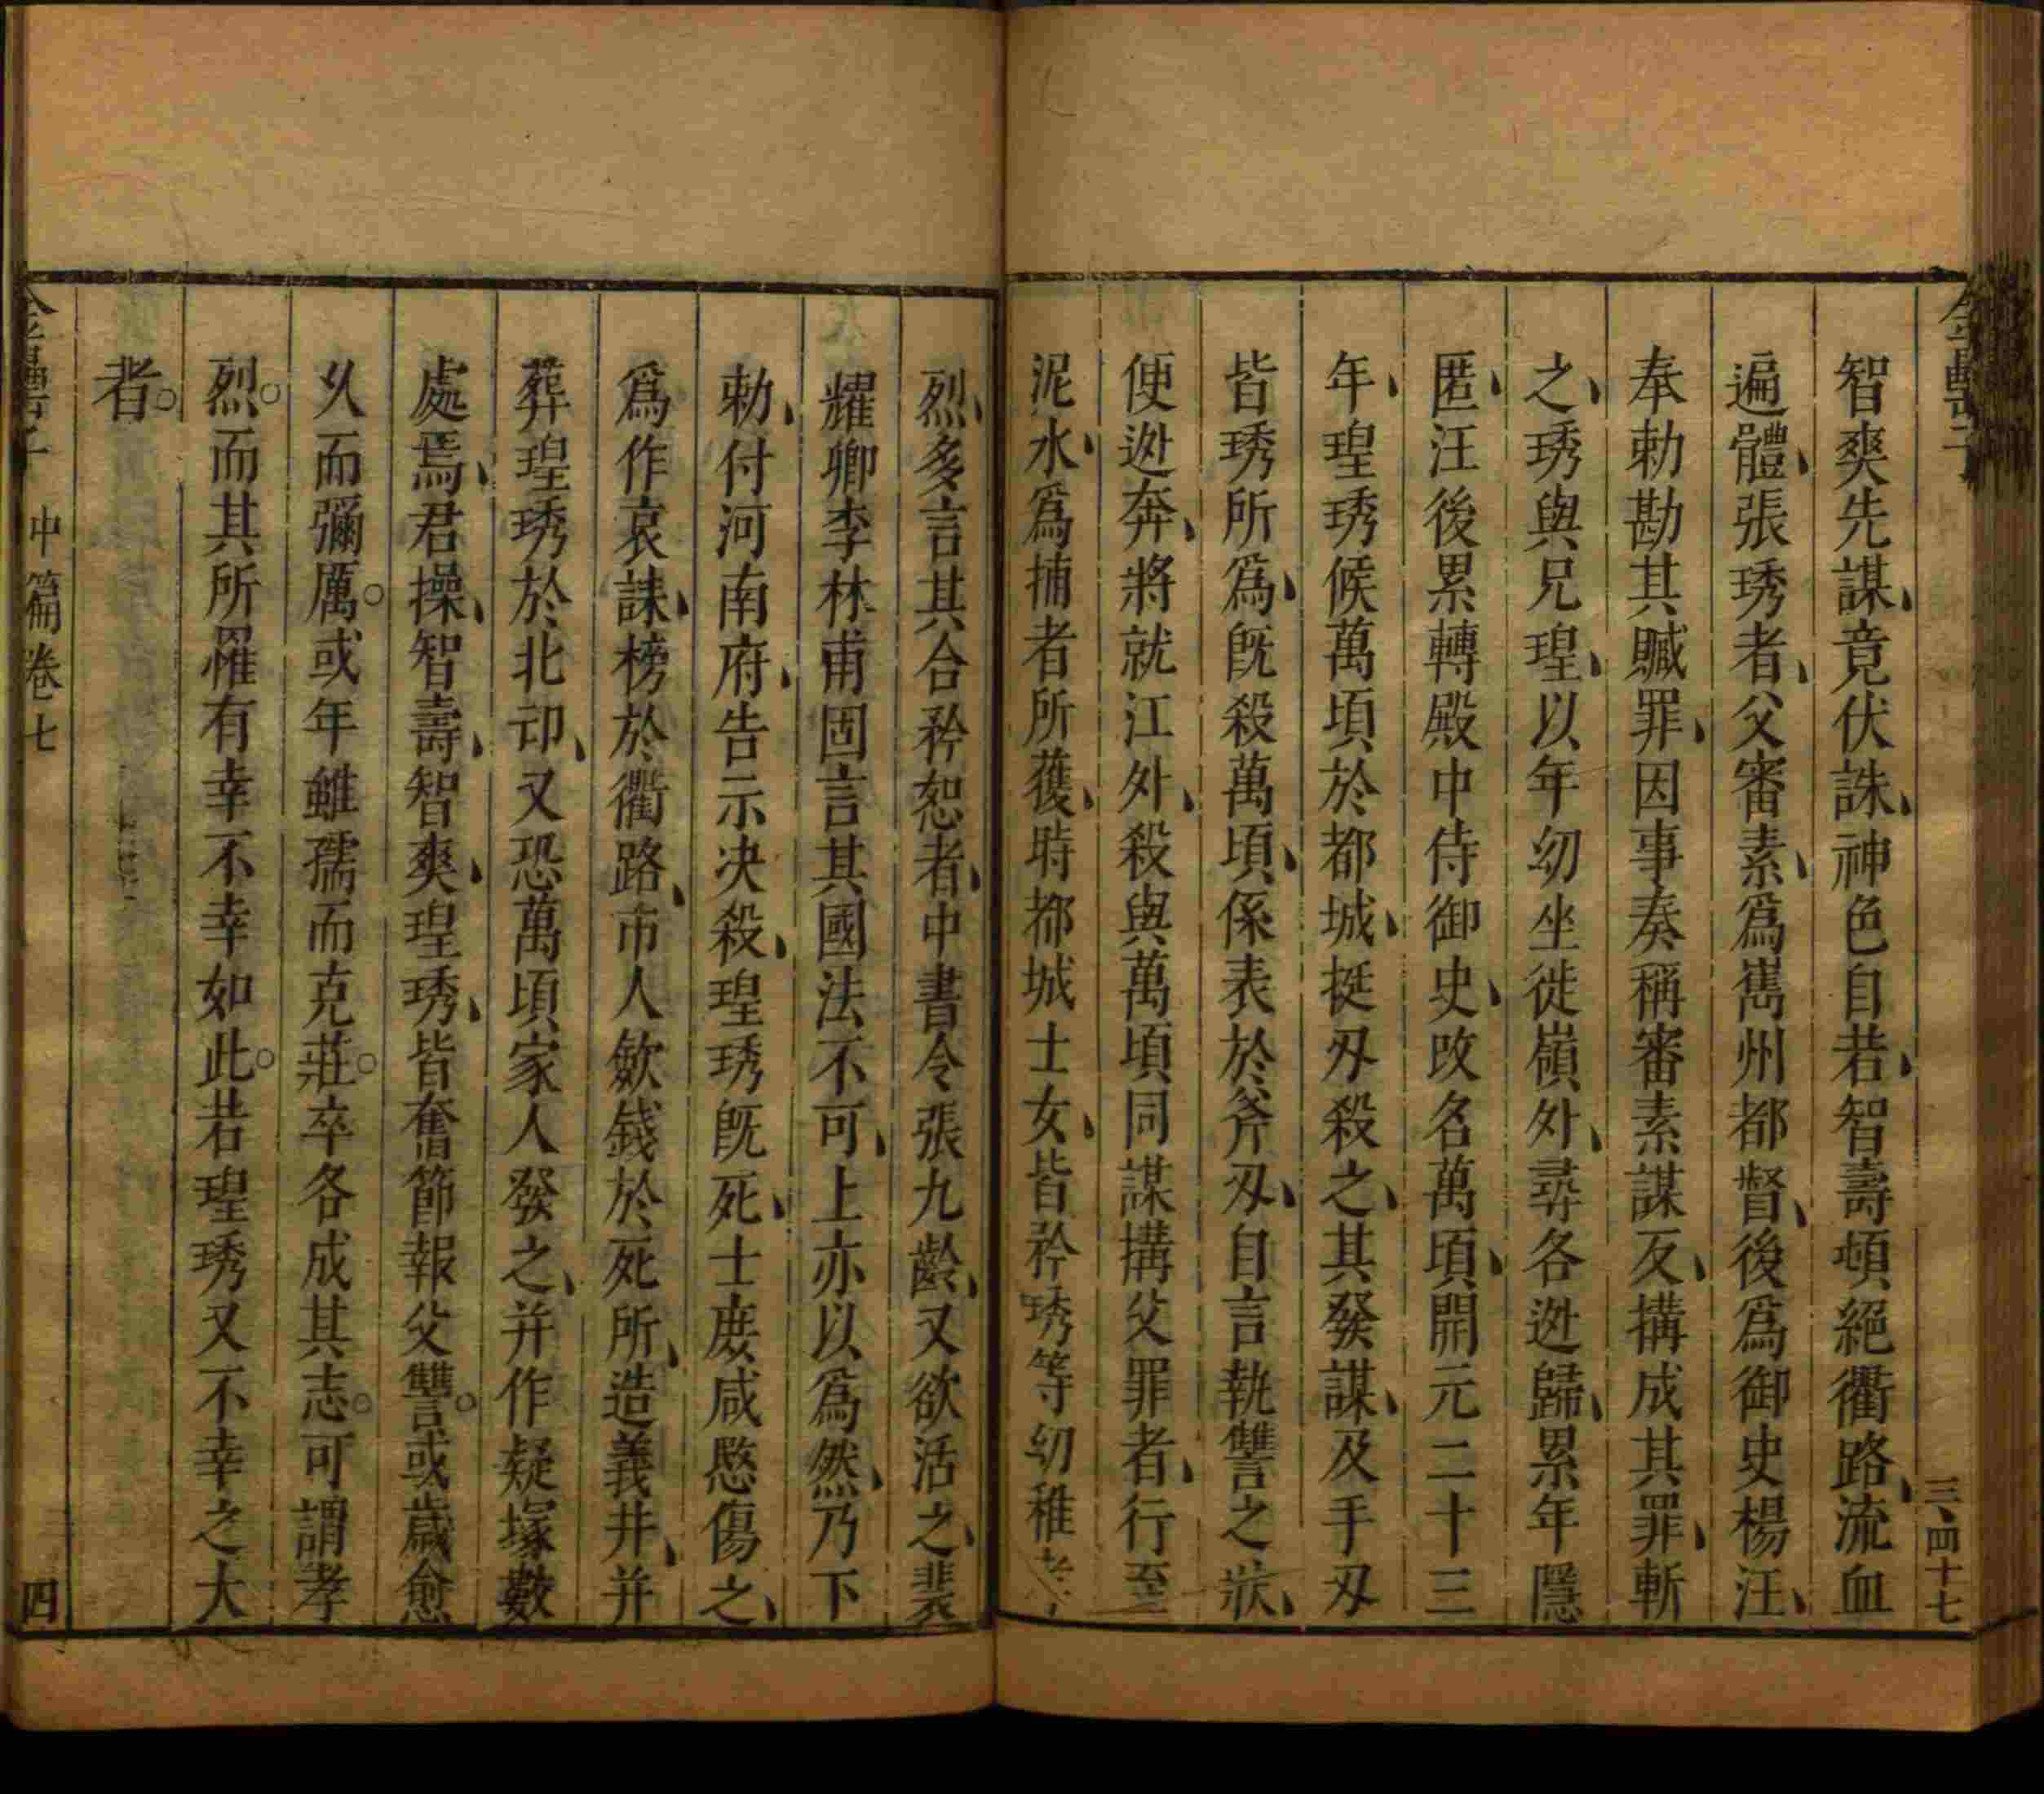 智爽先謀、竟伏誅、神色自若、智壽頓絕衢路、流血
遍體、張琇者、父審素、爲嶲州都督、後爲御史楊汪、
奉勅勘其贓罪、因事奏稱審素謀反、搆成其罪、斬
之、琇與兄瑝、以年幼坐徙嶺外、尋各迯歸、累年隱
匿、汪後累轉殿中侍御史、攺名萬頃、開元二十三
年、瑝琇候萬頃於都城、挺刄殺之、其發謀、及手刄
皆琇所爲、旣殺萬頃、係表於斧刄、自言執讐之狀、
便迯奔、將就江外、殺與萬頃同謀搆父罪者、行至
泥水、爲捕者所獲、時都城士女、皆矜琇等幼稚孝
烈、多言其合矜恕者、中書令張九齡、又欲活之、裴
耀卿李林甫固言其國法不可、上亦以爲然、乃下
勅、付河南府、告示决殺、瑝琇旣死、士庻咸愍傷之、
爲作哀誄、榜於衢路、市人歛錢於死所、造義井、并
葬瑝琇於北卭、又恐萬頃家人發之、并作疑塚數
處焉、君操、智壽、智爽、瑝琇、皆奮節報父讐○或歲愈
乆而彌厲○或年雖孺而克莊○卒各成其志○可謂孝
烈○而其所罹有幸不幸如此○若瑝琇又不幸之大
者○
中篇卷七
四
三、四十七